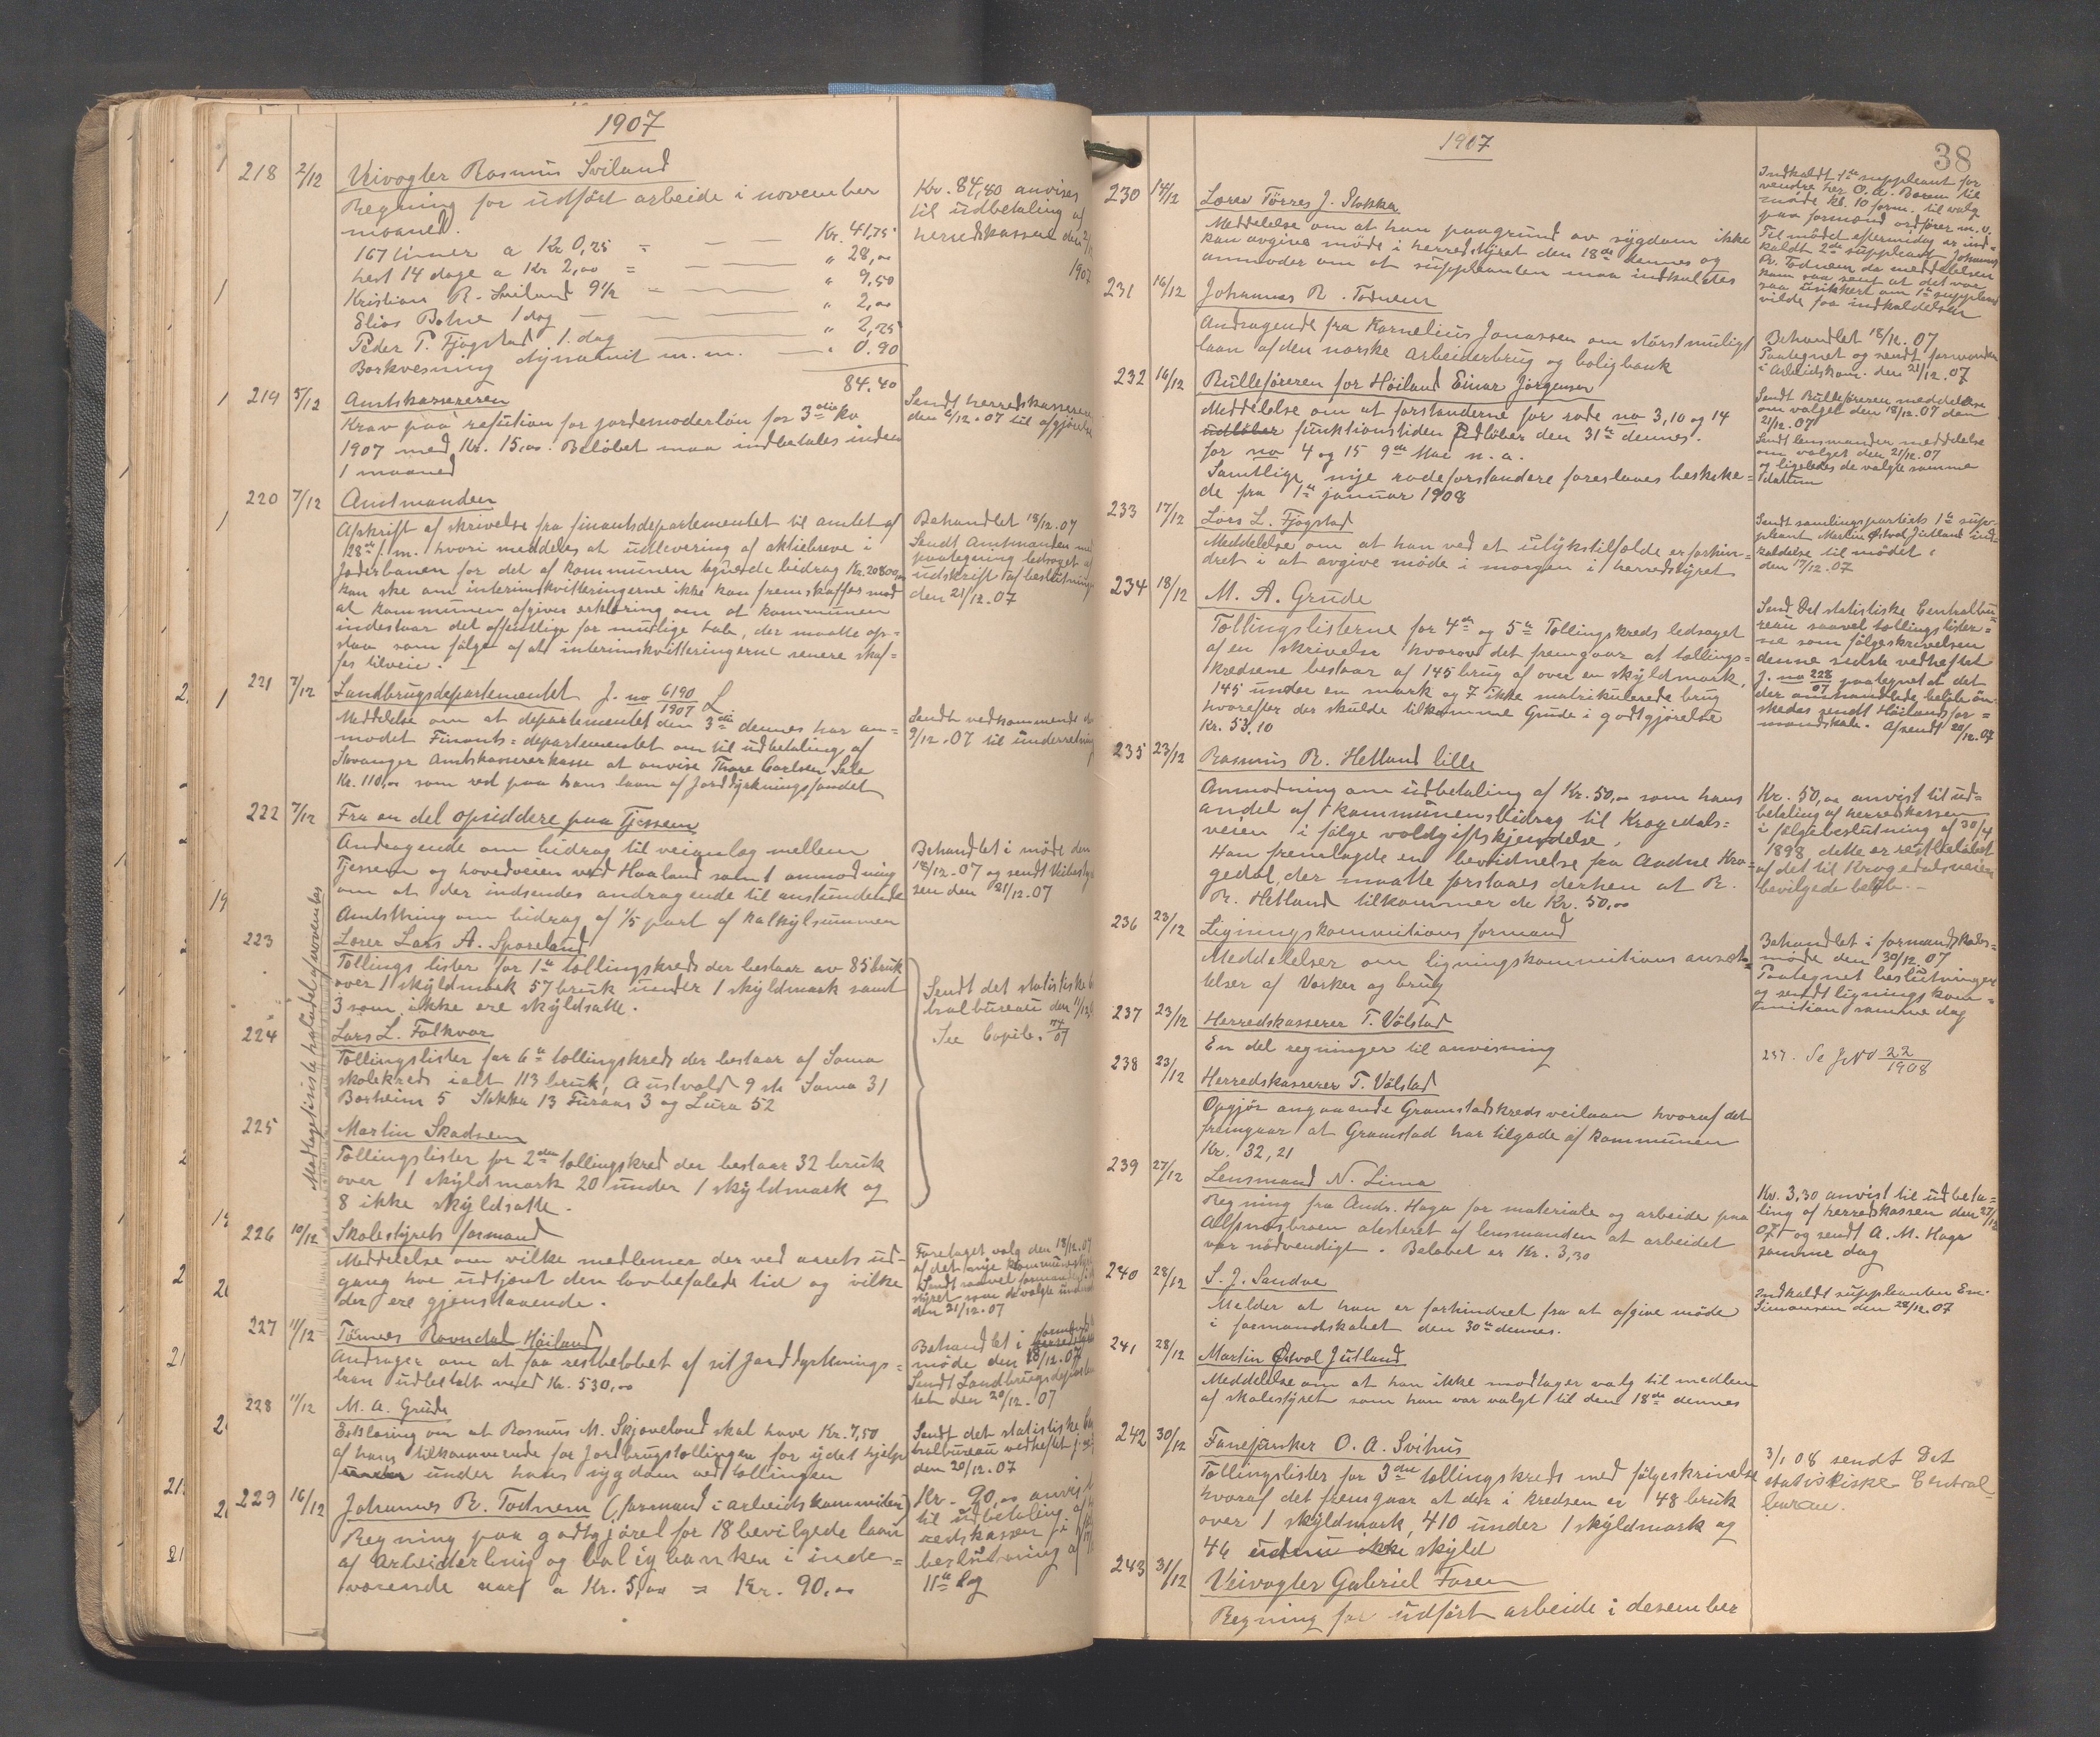 1907
218 2/12 Veivogter Rasmus Sviland
Regning for udført arbeide i november
maaned.
167 timer a Kr 0,25 = — — Kr. 41,75
hest 14 dage a Kr 2,00 = — — " 28,00
Kristian R. Sviland 9½ — — " 9,50
Elias Bohne 1 dag — — — " 2,00
Peder T. Fjogstad 1. dag — — " 2,25
Borkvesning dynamit m. m. — " 0.90
84.40
Kr. 84,40 anvises
til udbetaling af
herredskassen den 2/12
1907
219 5/12 Amtskassereren
Krav paa refution for jordemoderløn for 3die kv
1907 med Kr. 15,00. Beløbet maa indbetales inden
1 maaned
Sendt herredskasseren
den 6/12.07 til afgjørelse
220 7/12 Amtmanden
Afskrift af skrivelse fra finantsdepartementet til amtet af
28de f. m. hvori meddeles at udlevering af aktiebreve i
Jæderbanen for det af kommunen ydede bidrag Kr. 20800,00
kan ske om interimskvitteringerne ikke kan fremskaffes mod
at kommunen afgiver erklæring om at kommunen
indestaar det offentlige for mulige tab, der maatte op=
staa som følge af at interimskvitteringerne senere skaf=
fes tilveie.
Behandlet 18/12.07
Sendt Amtmanden med
paategning ledsaget af
udskrift af beslutning
den 21/12.07
221 7/12 Landbrugsdepartementet J. no 6190/1907 L
Meddelelse om at departementet den 3die dennes har an=
modet Finants=departementet om til udbetaling af
Stavanger Amtskassererkasse at anvise Thore Carlsen Sele
Kr. 110,00 som rest paa hans laan af Jorddyrkningsfondet
Sendt vedkommende d
9/12.07 til underretning
222 7/12 Fra en del opsiddere paa Tjessem
Andragende om bidrag til veianlæg mellem
Tjessem og hovedveien ved Haaland samt anmodning
om at der indsendes andragende til anstundende
Amtsthing om bidrag af 1/5 part af kalkylsummen
Behandlet i møde den
18/12.07 og sendt Veibesty
sen den 21/12.07
Modtaget i sidste halvdel af november
223 Lærer Lars A. Spareland
Tællings lister for 1ste tællingskreds der bestaar av 85 bruk
over 1 skyldmark 57 bruk under 1 skyldmark samt
3 som ikkse ere skyldsatte.
Sendt det statistiske
tralbureau den 11/12
See Copib.
224 Lars L. Folkvor
Tællingslister for 6te tællingskreds der bestaar af Soma
skolekreds ialt 113 bruk, Austvold 9 stk Soma 31
Borheim 5 Stokka 13 Furaas 3 og Lura 52
225 Martin Skadsem
Tællingslister for 2den tællingskred der bestaar 32 bruk
over 1 skyldmark 20 under 1 skyldmark og
8 ikke skyldsatte.
226 10/12 Skolestyrets formand
Meddelelse om vilke medlemer der ved aarets ud-
gang har udtjent den lovbefalede tid og vilke
der ere gjenstaaende.
Foretaget valg den 18/12.07
af det nye kommunestyre
Sendt saavel formanden i skole
styret som de valgte underretning
den 21/12.07
227 11/12 Tønnes Ravndal Høiland
Andrager om at faa restbeløbet af sit Jorddyrknings=
laan udbetalt med Kr. 530,00
Behandlet i formands
møde den 18/12.07
Sendt Landbrugsdeparte
tet den 20/12.07
228 11/12 M. A. Grude
Erklæring om at Rasmus M. Skjæveland skal have Kr. 7,50
af hans tilkommende for Jordbrugstællingen for ydet hjælp
under under hans sygdom ved tællingen
Sendt det statistiske Cen
tralbureau vedheftet j.
den 20/12.07
229 16/12 Johannes R. Todnem (formand i arbeidskommiten)
Regning paa godtgjørel for 18 bevilgede laan
af Arbeiderbrug og boligbanken i inde=
værende aar a Kr. 5,00 = Kr. 90,00
Kr. 90,00 anvist
til udbetaling af
redskassen
beslutning af
11te
1907
38
230 14/12 Lærer Tørres J. Stokka
Meddelelse om at han paagrund av sygdom ikke
kan avgive møde i herredstyret den 18de dennes og
anmoder om at suppleanten maa indkaldes
Indkaldt 1ste suppleant for
vendre her O. A. Boren til
møde kl. 10 form. til valg
paa formand ordfører m. v.
Til mødet eftermidag er ind=
kaldt 2de suppleant Johannes
R. Todnem da meddelelsen
kom saa sent at det var
saa usikkert om 1ste suppleant
vilde faa indkaldelsen
231 16/12 Johannes R. Todnem
Andragende fra Kornelius Jonassen om størstmuligt
laan af den norske Arbeiderbrug og boligbank
Behandlet 18/12.07
Paategnet og sendt formanden
i Arbeidskom. den 21/12.07
232 16/12 Rulleføreren for Høiland Einar Jørgensen
Meddelelse om at forstanderne for rode no 3, 10 og 14
udløber funktionstiden udløber den 31te dennes.
for no 4 og 15 9de Mai n. a.
Samtlige nye rodeforstandere foreslaaes beskikke=
de fra 1ste januar 1908
Sendt Rulleføreren meddelelse
om valget den 18/12.07 den
21/12.07
Sendt lensmanden meddelelse
om valget den 21/12.07
og ligeledes de valgte samme
datum
233 17/12 Lars L. Fjogstad
Meddelelse om at han ved et ulykstilfælde er forhin=
dret i at avgive møde i morgen i herredstyret
Sendt samlingspartiets 1ste sup=
pleant Martin Østvol Jutland ind=
kaldelse til mødet.
den 17/12.07
234 18/12 M. A. Grude
Tællingslisterne for 4de og 5te Tællingskreds ledsaget
af en skrivelse hvorav det fremgaar at tællings=
kredsene bestaar af 145 brug af over en skyldmark,
145 under en mark og 7 ikke matrikulerede brug
hvorefter der skulde tilkomme Grude i godtgjørelse
Kr. 53,10
Send Det statistiske Centralbu=
reau saavel tællingslister=
ne som følgeskrivelsen
denne sidste vedheftet
J. no 228/07 paategnet at det
der ommeldte beløb øn=
skedes sendt Høilands for=
mandskab. Afsendt 20/12.07
235 23/12 Rasmus R. Hetland lille
Anmodning om udbetaling af Kr. 50,00 som hans
andel af kommunens bidrag til Krogedals=
veien i følge voldgiftskjendelse.
Han fremlagde en bevidnelse fra Andne Kro=
gedal, der maatte forstaaes derhen at R.
R. Hetland tilkommer de Kr. 50,00
Kr. 50,00 anvist til ud=
betaling af herredskassen
i følge beslutning af 30/4
1898 dette er restbeløbet
af det til Krogedalsveien
bevilgede beløb.
236 23/12 Ligningskommitions formand
Meddelelser om ligningskommitions ansæt=
telser af Værker og brug
Behandlet i formandskabs=
møde den 30/12.07
Paategnet beslutninger
og sendt ligningskom=
mition samme dag
237 23/12 Herredskasserer T. Vølstad
En del regninger til anvisning
237. Se J.No 22/1908
238 23/12 Herredskasserer T. Vølstad
Opgjør angaaende Gramstadskreds veilaan hvoraf det
fremgaar at Gramstad har tilgode af kommunen
Kr. 32,21
239 27/12 Lensmand N. Lima
Regning fra Andr. Haga for materiale og arbeide paa
Alsnesbroen atesteret af lensmanden at arbeidet
var nødvendigt. Beløbet er Kr. 3,30
Kr. 3.30 anvist til udbeta=
ling af herredskassen den 27/12
07 og sendt A. M. Haga
samme dag
240 28/12 S. J. Sandve
Melder at han er forhindret fra at afgive møde
i formandskabet den 30te dennes.
Indkaldt suppleanten Em.
Simonsen den 28/12.07
241 28/12 Martin Østvol Jutland
Meddelelse om at han ikke modtager valg til medlem
af skolestyret som han var valgt til den 18de dennes
242 30/12 Fanejunker O. A. Svihus
Tællingslister for 3die tællingskreds med følgeskrivelse
hvoraf det fremgaar at der i kredsen er 48 bruk
over 1 skyldmark, 410 under 1 skyldmark og
46 uden ikke skyld
3/1 08 sendt Det
statistiske Central=
bureau.
243 31/12 Veivogter Gabriel Foren
Regning for udført arbeide i desember